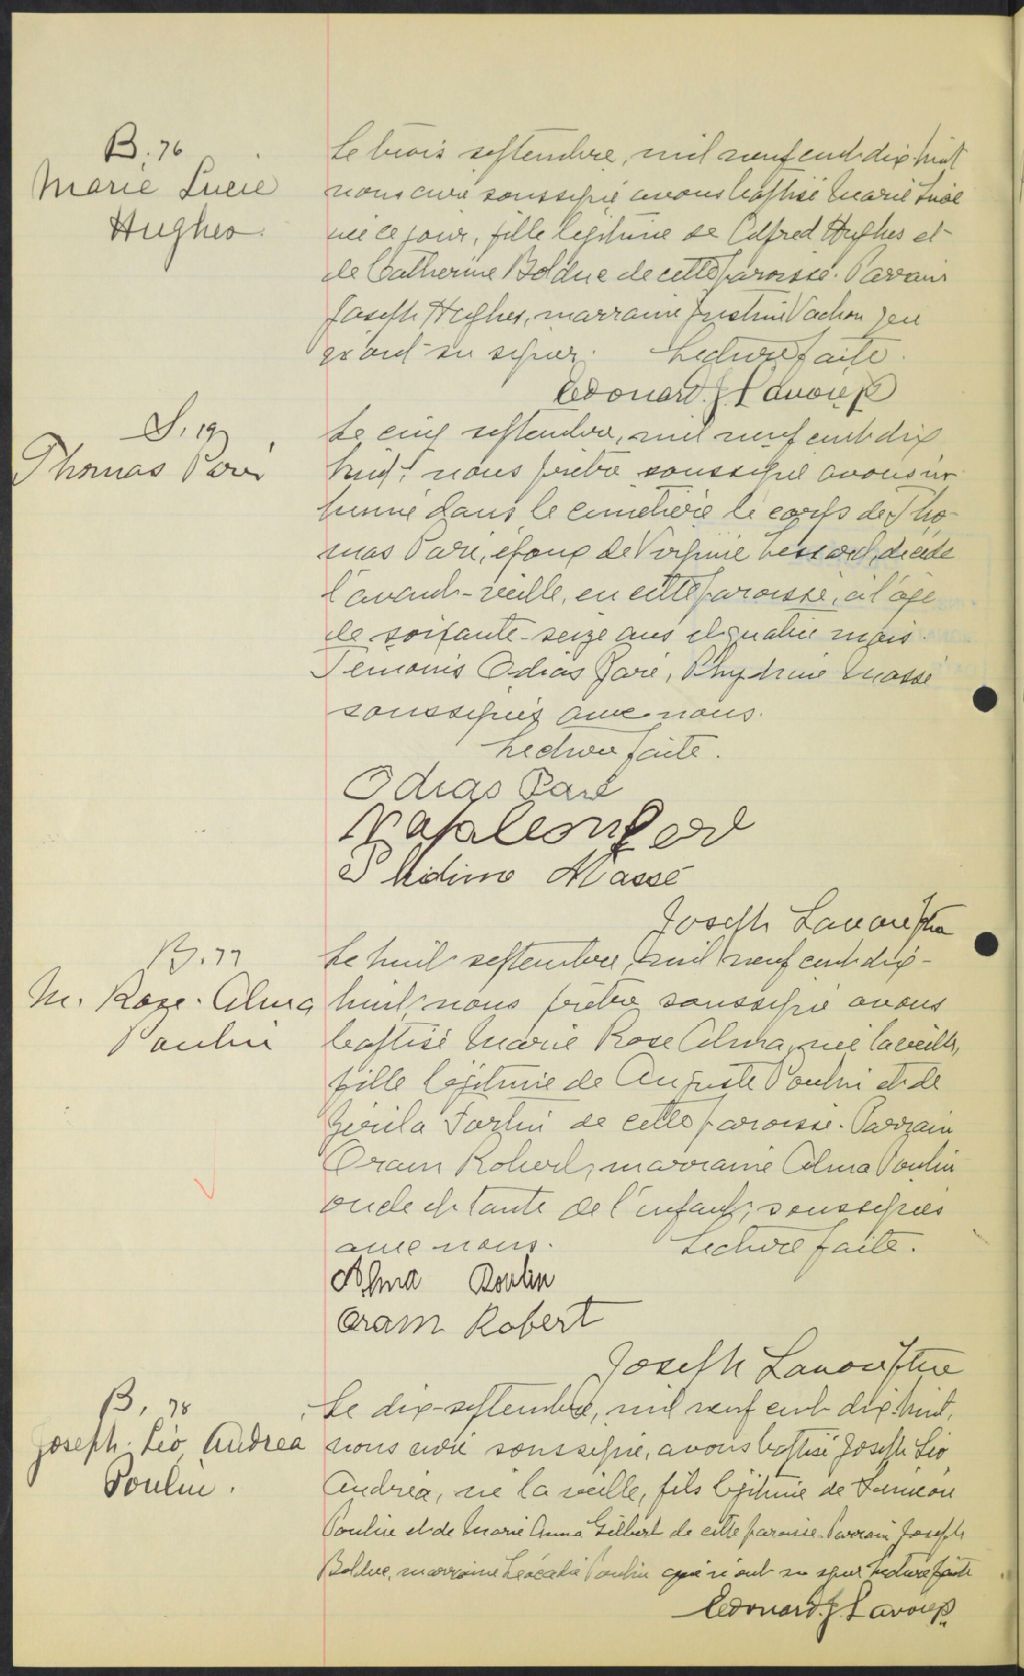 B. 76
Marie Lucie
Hughes.
Le trois septembre, mil neuf cent dix huit
nous curé soussigné avons baptisé Marie Lucie
née ce jour, fille légitime de Alfred Hughes et
de Catherine Bolduc de cette paroisse. Parrain
Joseph Hughes, marraine Vachon
n'ont su signer. Lecture faite.
Edouard J. Lavoie p
S. 19
Thomas Paré
Le cinq septembre, mil neuf cent dix
huit, nous prêtre soussigné avons in
humé dans le cimetière le corps de Tho-
mas Paré, époux de Virginie Lessard, décédé
l'avant-veille, en cette paroisse, à l'âge
de soixante-seize ans et quatre mois.
Témoins Odias Paré, Massé
soussignés avec nous.
Lecture faite.
Odias Paré
Napoleon Paré
Phidime Massé
Joseph Lavoie ptre
B. 77
M. Rose-Alma
Poulin
Le huit septembre, mil neuf cent dix-
huit, nous prêtre soussigné avons
baptisé Marie Rose Alma, née la veille,
fille légitime de Auguste Poulin et de
Fortin de cette paroisse. Parrain
Oram Robert, marraine Alma Poulin
oncle et tante de l'enfant, soussignés
avec nous. Lecture faite.
Alma Poulin
Oram Robert
Joseph Lavoie ptre
B. 78
Joseph. Léo. Andrea
Poulin.
Le dix-septembre, mil neuf cent dix-huit,
nous curé soussigné, avons baptisé Joseph Léo
Andréa, né la veille, fils légitime de Siméon
Poulin et de Marie Anna Gilbert de cette paroisse. Parrain Joseph
Bolduc, marraine Léocadie Poulin qui n'ont su signer Lecture faite
Edouard J. Lavoie p